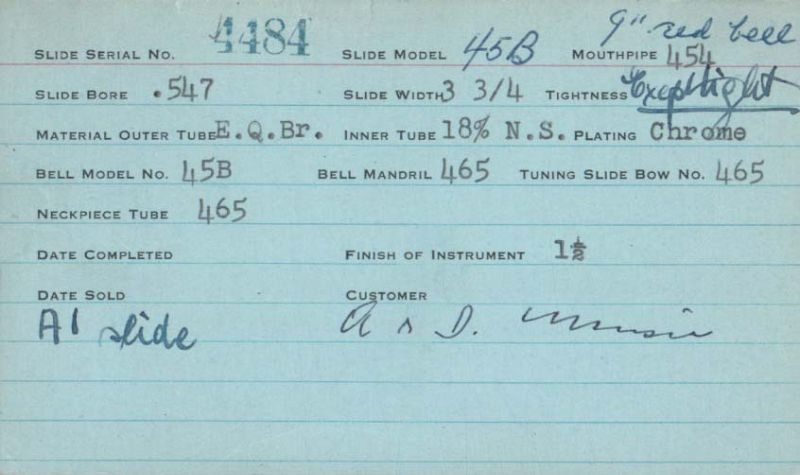 9" red bell
SLIDE SERIAL NO. 4484 SLIDE MODEL 45B MOUTHPIPE 454
SLIDE BORE .547 SLIDE WIDTH 3 3/4 TIGHTNESS Excep tight
MATERIAL OUTER TUBE E.Q.Br. INNER TUBE 18% N.S. PLATING Chrome
BELL MODEL NO. 45B BELL MANDRIL 465 TUNING SLIDE BOW NO. 465
NECKPIECE TUBE 465
DATE COMPLETED FINISH OF INSTRUMENT 1½
DATE SOLD CUSTOMER
A1 slide A & D. Music